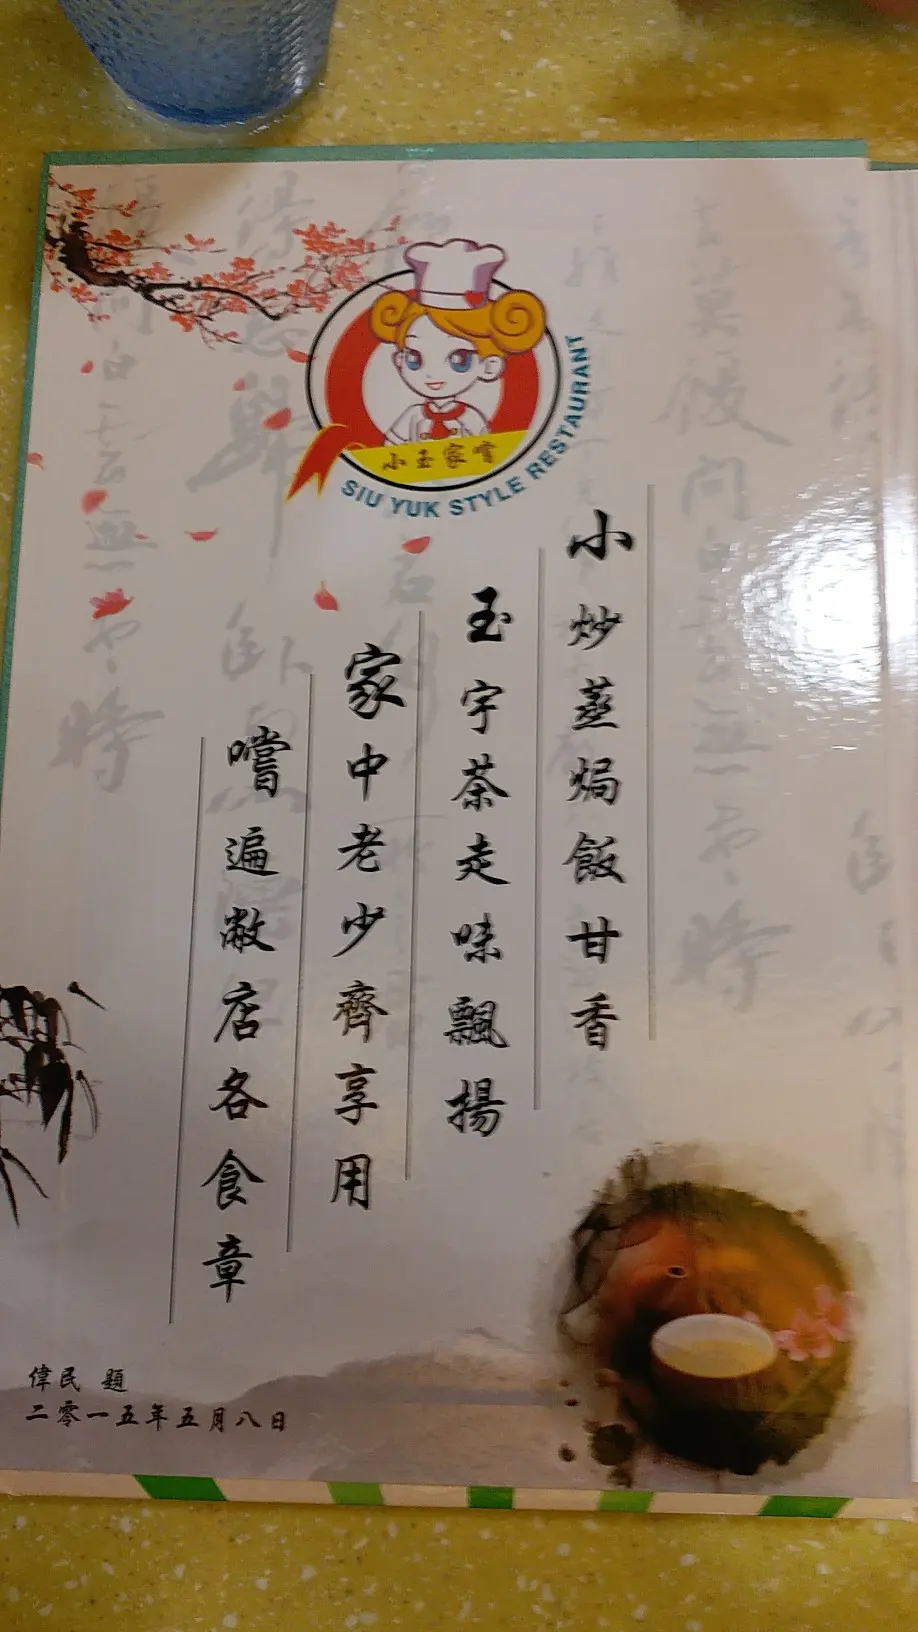 小玉家嚐
SIU YUK STYLE RESTAURANT
小炒蒸焗飯甘香
玉宇茶走味飄揚
家中老少齊享用
嚐遍敝店各食章
偉民 題
二零一五年五月八日